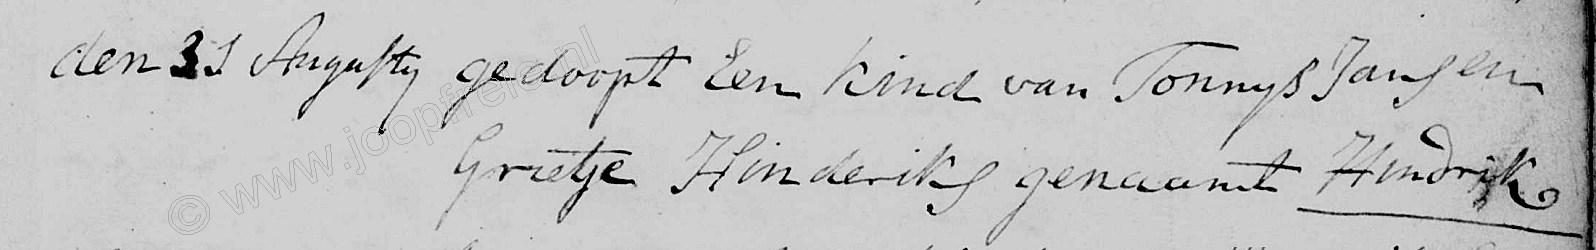 den 31 Augusty gedoopt Een kind van Tonnys Jansen
Grietje Hinderiks genaamt Hindrik
© www.joopfrei.nl